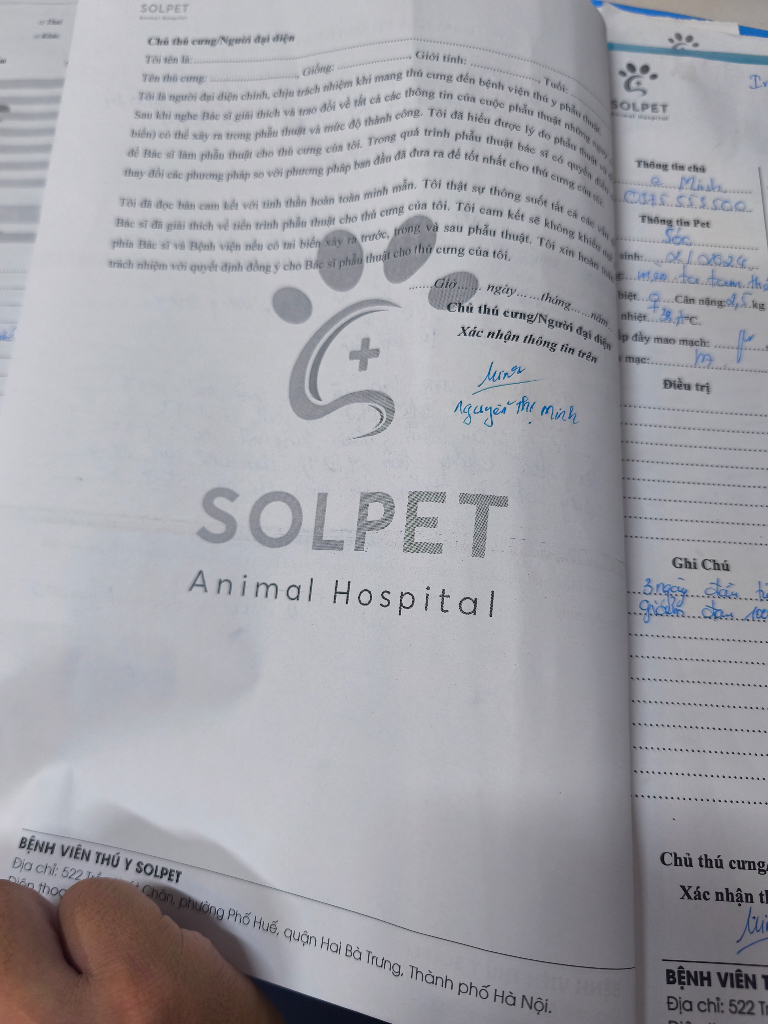 SOLPET
Animal Hospital
Chủ thú cưng/Người đại diện
Tôi tên là:
Tên thú cưng: Giống: Giới tính: Tuổi:
Tôi là người đại diện chính, chịu trách nhiệm khi mang thú cưng đến bệnh viện thú y phẫu thuật.
Sau khi nghe Bác sĩ giải thích và trao đổi về tất cả các thông tin của cuộc phẫu thuật những
biến) có thể xảy ra trong phẫu thuật và mức độ thành công. Tôi đã hiểu được lý do phẫu thuật và
để Bác sĩ làm phẫu thuật cho thú cưng của tôi. Trong quá trình phẫu thuật bác sĩ có quyền
thay đổi các phương pháp so với phương pháp ban đầu đã đưa ra để tốt nhất cho thú cưng của tôi.
Tôi đã đọc bản cam kết với tinh thần hoàn toàn minh mẫn. Tôi thật sự thông suốt tất cả các
Bác sĩ đã giải thích về tiến trình phẫu thuật cho thú cưng của tôi. Tôi cam kết sẽ không khiếu
phía Bác sĩ và Bệnh viện nếu có tai biến xảy ra trước, trong và sau phẫu thuật. Tôi xin hoàn
trách nhiệm với quyết định đồng ý cho Bác sĩ phẫu thuật cho thú cưng của tôi.
Giờ ngày tháng năm
Chủ thú cưng/Người đại diện
Xác nhận thông tin trên
Nguyễn Thị Minh
SOLPET
Animal Hospital
BỆNH VIỆN THÚ Y SOLPET
Địa chỉ: 522 Chân, phường Phố Huế, quận Hai Bà Trưng, Thành phố Hà Nội.
SOLPET
Animal Hospital
Thông tin chủ
Minh
Thông tin Pet
Sóc
sinh: 02/2024
mèo ta tam
biệt: Cân nặng: 2,5 kg
nhiệt °C.
đầy mao mạch:
mạc:
Điều trị
Ghi Chú
3 ngày
giảm đau 100
Chủ thú cưng/
Xác nhận
BỆNH VIỆN
Địa chỉ: 522